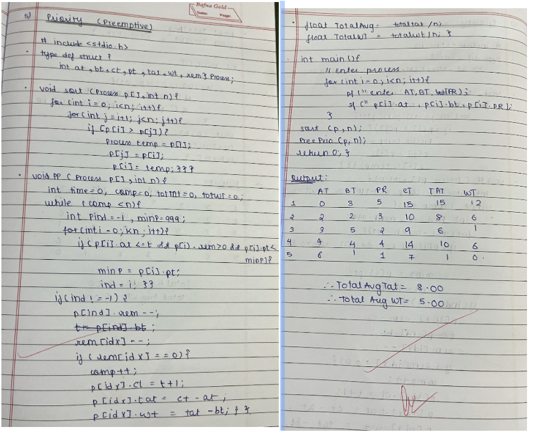 5) Priority (Preemptive)
# include <stdio.h>
• type def struct {
int at, bt, ct, pt, tat, wt, rem } Process;
• void sort (Process p[], int n) {
for (int i=0; i<n; i++) {
for (int j=i+1; j<n; j++) {
if (p[i] > p[j]) {
Process temp = p[i];
p[j] = p[i];
p[i] = temp; }}}
• void PP (Process p[], int n) {
int time=0, comp=0, totat=0, totwt=0;
while (comp < n) {
int Pind = -1, minP = 999;
for (int i=0; i<n; i++) {
if (p[i].at <= t && p[i].rem>0 && p[i].pt<
minP) {
minP = p[i].pt;
ind = i; }}
if (ind != -1) {
p[ind].rem --;
t = p[ind].bt;
rem[idx] --;
if (rem[idx] == 0) {
comp++;
p[idx].ct = t+1;
p[idx].tat = ct - at;
p[idx].wt = tat - bt; } }
Refine Gold
• float TotalAvg = totat / n;
float TotalWT = totalwt / n; }
int main () {
// enter process
for (int i=0; i<n; i++) {
pf (" enter AT, BT,
sf (" p[i].at, p[i].bt, p[i].PR);
}
sort (p, n);
Pre Prio (p, n);
return 0; }
Output:
AT BT PR CT TAT WT
1 0 3 5 15 15 12
2 2 2 3 10 8 6
3 3 5 2 9 6 1
4 4 4 4 14 10 6
5 6 1 1 7 1 0
∴ Total Avg Tat = 8.00
∴ Total Avg WT = 5.00